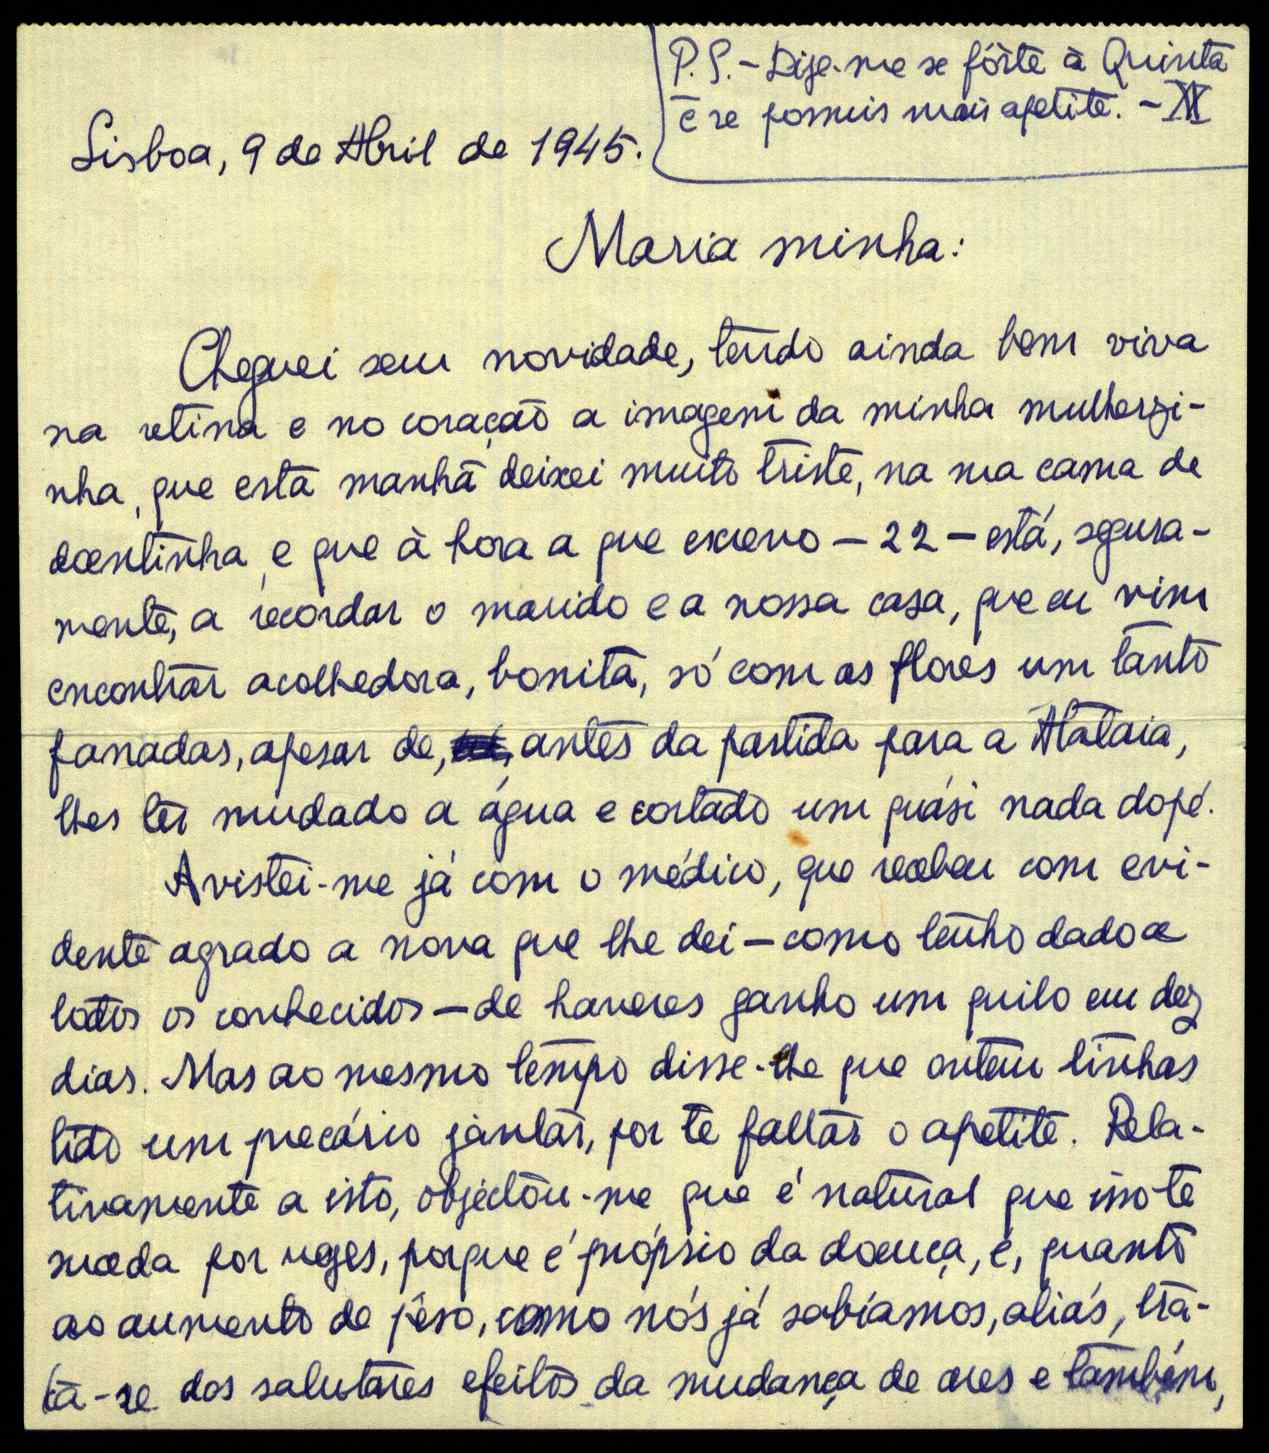 P.S. – Dize-me se fôste à Quinta
e se possuis mais apetite. –
Lisboa, 9 de Abril de 1945.
Maria minha:
Cheguei sem novidade, tendo ainda bem viva
na retina e no coração a imagem da minha mulherzi-
nha, que esta manhã deixei muito triste, na sua cama de
doentinha, e que à hora a que escrevo – 22 – está, segura-
mente, a recordar o marido e a nossa casa, que eu vim
encontrar acolhedora, bonita, só com as flores um tanto
fanadas, apesar de, antes da partida para a Atalaia,
lhes ter mudado a água e cortado um quási nada do pé.
Avistei-me já com o médico, que recebeu com evi-
dente agrado a nova que lhe dei – como tenho dado a
todos os conhecidos – de haveres ganho um quilo em dez
dias. Mas ao mesmo tempo disse-lhe que ontem tinhas
tido um precário jantar, por te faltar o apetite. Rela-
tivamente a isto, objectou-me que é natural que isso te
suceda por vezes, porque é próprio da doença, e, quanto
ao aumento de pêso, como nós já sabíamos, aliás, tra-
ta-se dos salutares efeitos da mudança de ares e também,